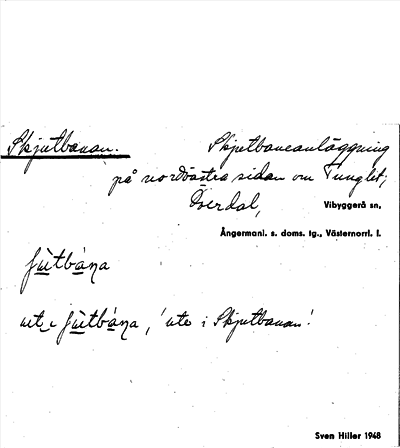 Skjutbanan.
Skjutbaneanläggning
på nordvästra sidan om Tunglet,
Överdal,
Vibyggerå sn,
Ångermanl. s. doms. tg., Västernorrl. l.
ʃùtbána
ute ʃùtbána, 'ute i Skjutbanan'.
Sven Hiller 1948